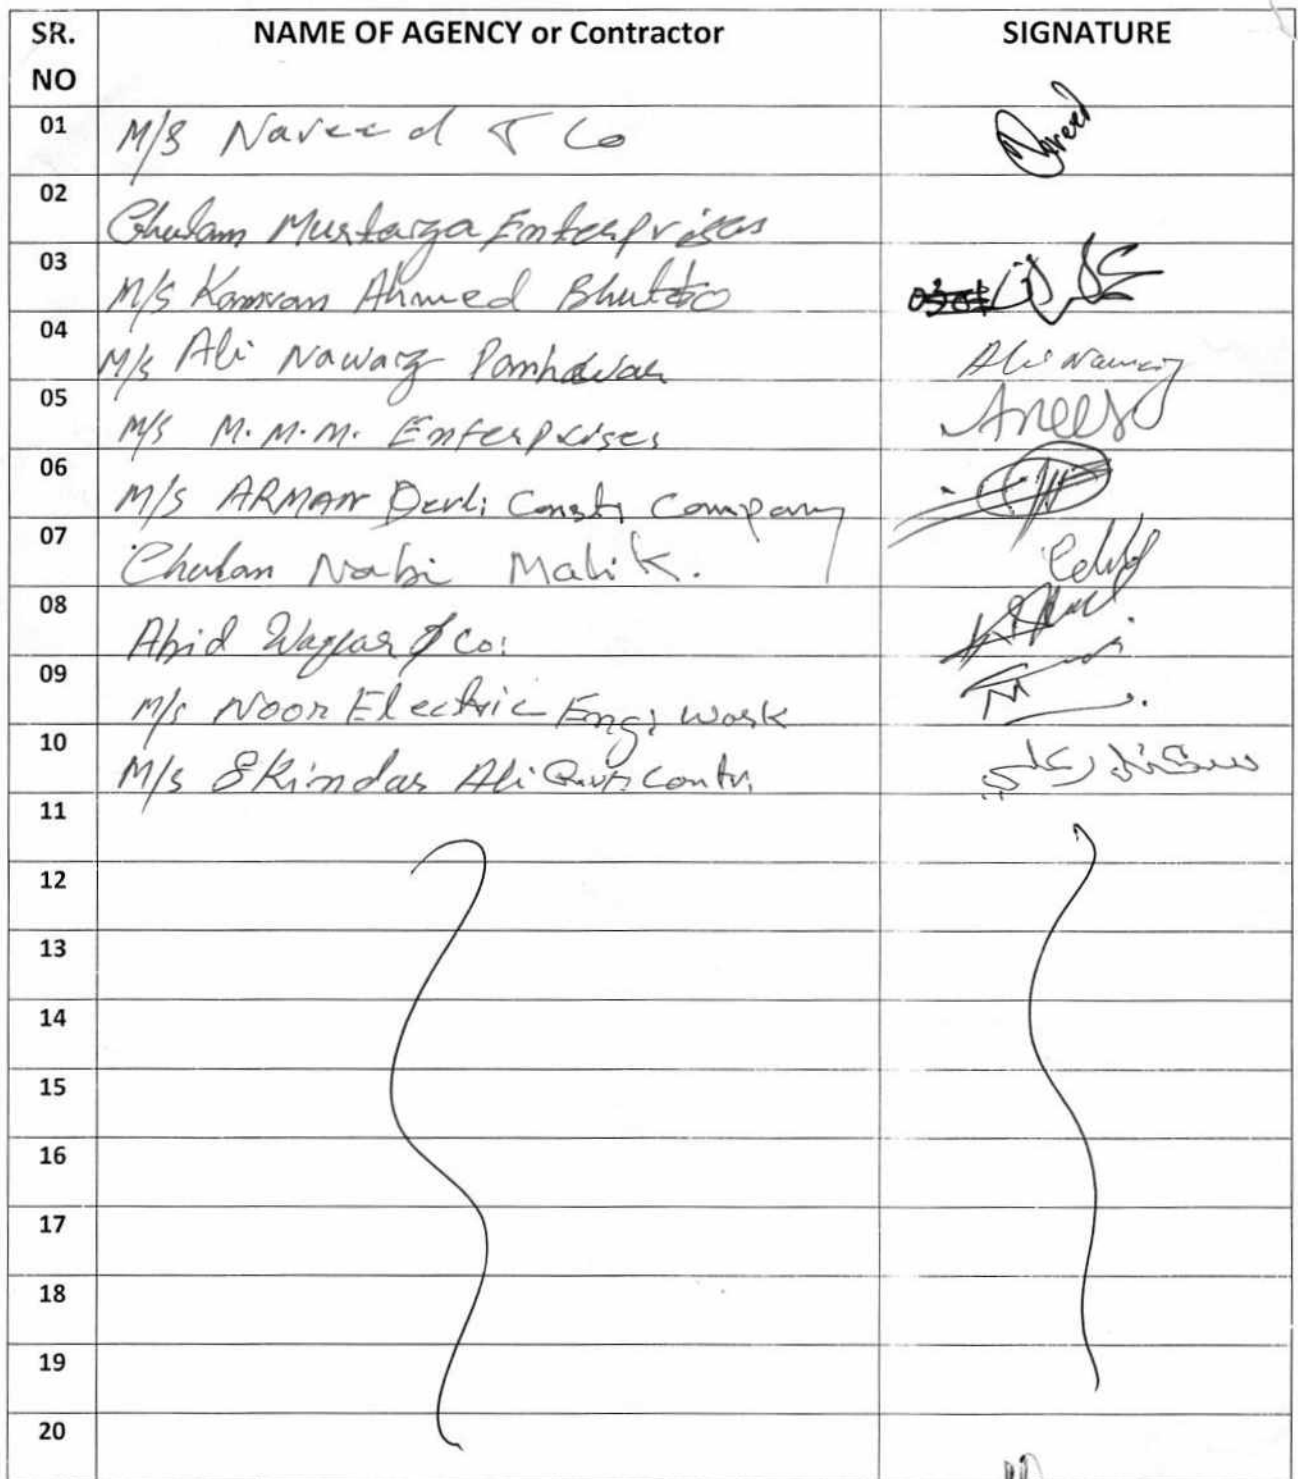 SR. NO NAME OF AGENCY or Contractor SIGNATURE
01 M/S Naveed & Co Naveed
02 Ghulam Murtaza Enterprises
03 M/s Kamran Ahmed Bhutto
04 M/s Ali Nawaz Panhawar Ali Nawaz
05 M/s M.M.M. Enterprises Anees
06 M/s ARMAN Constr Company
07 Ghulam Nabi Malik.
08 Abid Waqar & Co:
09 M/s Noor Electric Engi Work
10 M/s Skindar Ali Contr. سڪندر علي
11
12
13
14
15
16
17
18
19
20